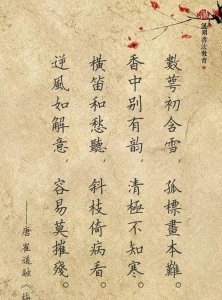 數萼初含雪，孤標畫本難。
香中别有韵，清極不知寒。
橫笛和愁聽，斜枝倚病看。
逆風如解意，容易莫摧殘。
——唐崔道融《梅